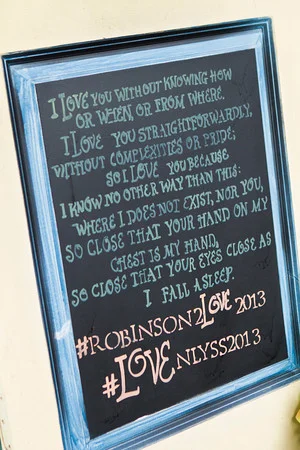 I LOVE YOU WITHOUT KNOWING HOW
OR WHEN, OR FROM WHERE.
I LOVE YOU STRAIGHTFORWARDLY,
WITHOUT COMPLEXITIES OR PRIDE;
SO I LOVE YOU BECAUSE
I KNOW NO OTHER WAY THAN THIS:
WHERE I DOES NOT EXIST, NOR YOU,
SO CLOSE THAT YOUR HAND ON MY
CHEST IS MY HAND,
SO CLOSE THAT YOUR EYES CLOSE AS
I FALL ASLEEP.
#ROBINSON2LOVE 2013
#LOVE NLYSS2013